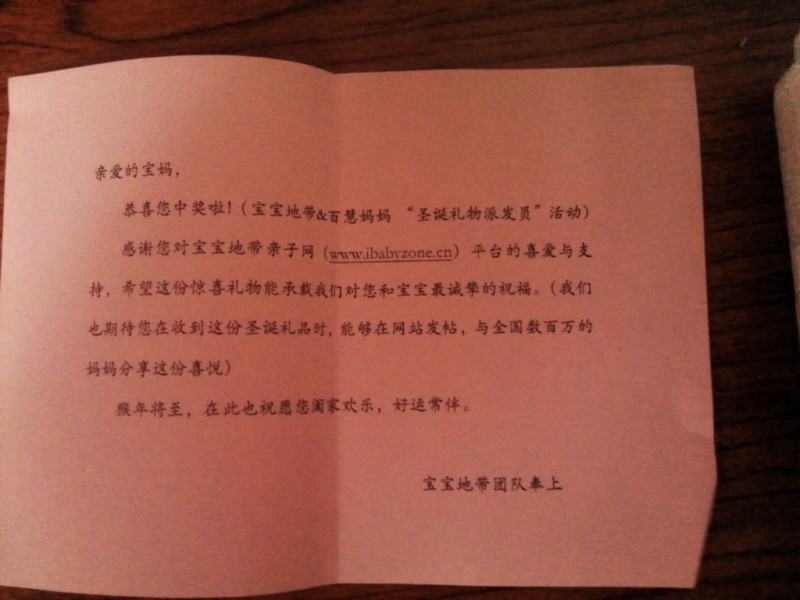 亲爱的宝妈，
恭喜您中奖啦！（宝宝地带&百慧妈妈 “圣诞礼物派发员”活动）
感谢您对宝宝地带亲子网（www.ibabyzone.cn）平台的喜爱与支
持，希望这份惊喜礼物能承载我们对您和宝宝最诚挚的祝福。（我们
也期待您在收到这份圣诞礼品时，能够在网站发帖，与全国数百万的
妈妈分享这份喜悦）
猴年将至，在此也祝愿您阖家欢乐，好运常伴。
宝宝地带团队奉上